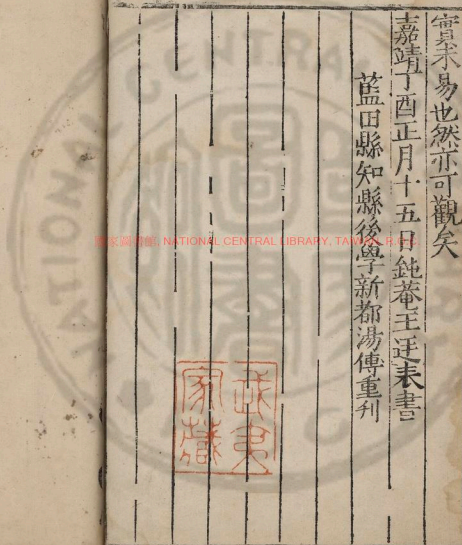 實未易也然亦可觀矣
嘉靖丁酉正月十五日鈍菴王迋表書
藍田縣知縣後學新都湯傳重刊
國家圖書館, NATIONAL CENTRAL LIBRARY, TAIWAN, R.O.C
家藏